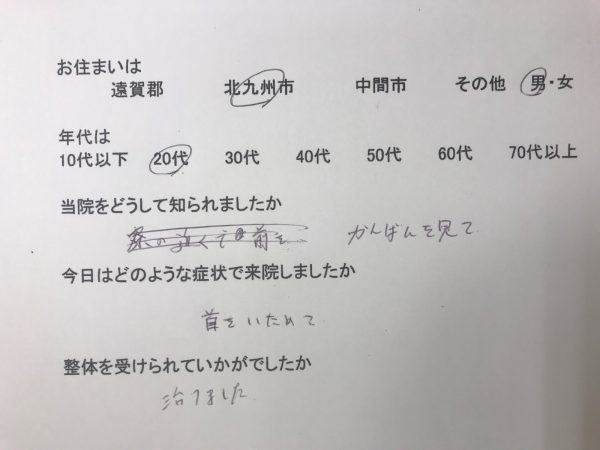 お住まいは
遠賀郡 北九州市 中間市 その他 男・女
年代は
10代以下 20代 30代 40代 50代 60代 70代以上
当院をどうして知られましたか
かんばんを見て
今日はどのような症状で来院しましたか
首をいためて
整体を受けられていかがでしたか
治りました